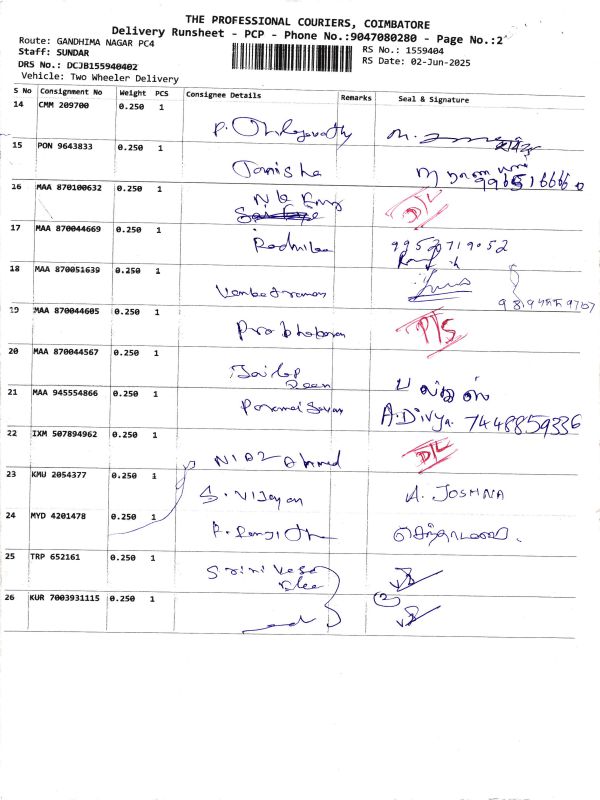 THE PROFESSIONAL COURIERS, COIMBATORE
Delivery Runsheet - PCP - Phone No.:9047080280 - Page No.:2
Route: GANDHIMA NAGAR PC4
Staff: SUNDAR
RS No.: 1559404
DRS No.: DCJB155940402
RS Date: 02-Jun-2025
Vehicle: Two Wheeler Delivery
S No Consignment No Weight PCS Consignee Details Remarks Seal & Signature
14 CMM 209700 0.250 1
P.
M.
15 PON 9643833 0.250 1
Tanisha
16 MAA 870100632 0.250 1
N K Eng
D/L
17 MAA 870044669 0.250 1
Radhika 9952719052
18 MAA 870051639 0.250 1
Venkatraman
19 MAA 870044605 0.250 1
Prabhakaran P/S
20 MAA 870044567 0.250 1
21 MAA 945554866 0.250 1
A.Divya. 7448859336
22 IXM 507894962 0.250 1
Niaz Ahmed D/L
23 KMU 2054377 0.250 1
S. Vijayan A. JOSHNA
24 MYD 4201478 0.250 1
P. Ranjith
25 TRP 652161 0.250 1
Srinivasa
26 KUR 7003931115 0.250 1
2